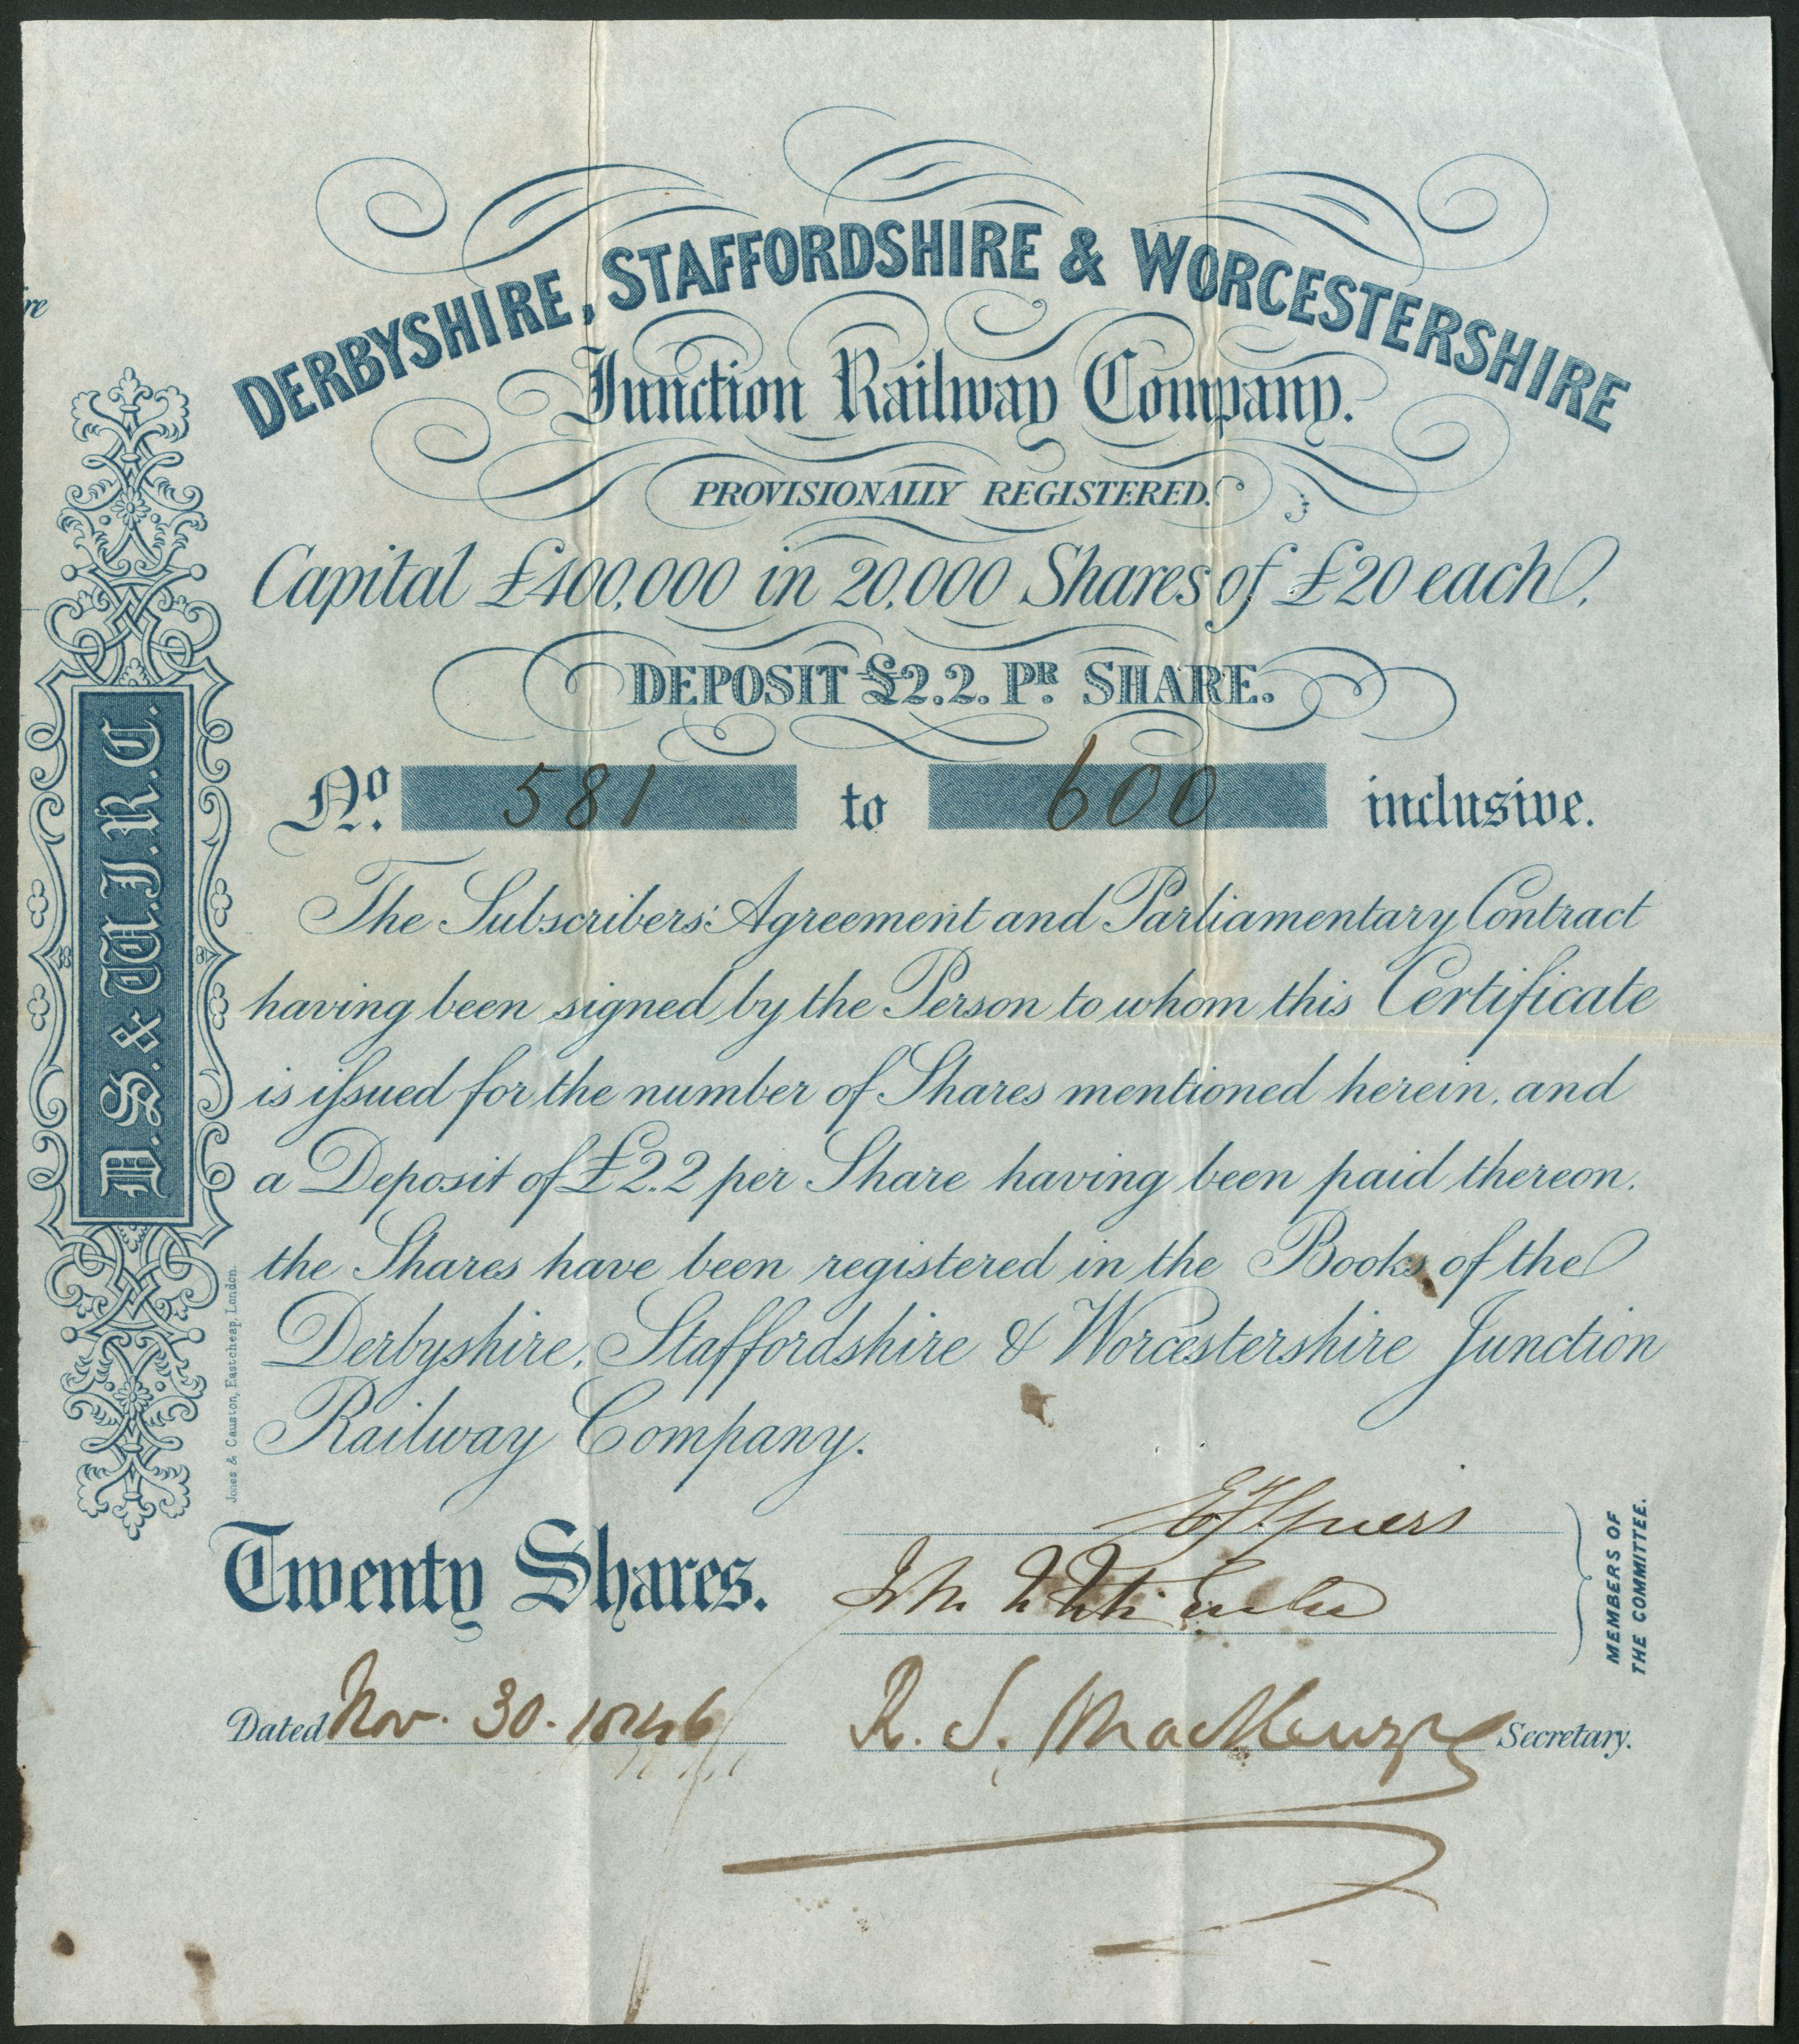 re
DERBYSHIRE, STAFFORDSHIRE & WORCESTERSHIRE
Junction Railway Company.
PROVISIONALLY REGISTERED.
Capital £400,000 in 20,000 Shares of £20 each.
DEPOSIT £2.2. PR. SHARE.
No. 581 to 600 inclusive.
The Subscribers' Agreement and Parliamentary Contract
having been signed by the Person to whom this Certificate
is issued for the number of Shares mentioned herein, and
a Deposit of £2.2 per Share having been paid thereon,
the Shares have been registered in the Books of the
Derbyshire, Staffordshire & Worcestershire Junction
Railway Company.
D.S. & W.J.R.C.
Jones & Causton, Eastcheap, London.
Twenty Shares.
MEMBERS OF
THE COMMITTEE.
Dated Nov. 30. 1846 R. S. MacKenzie Secretary.